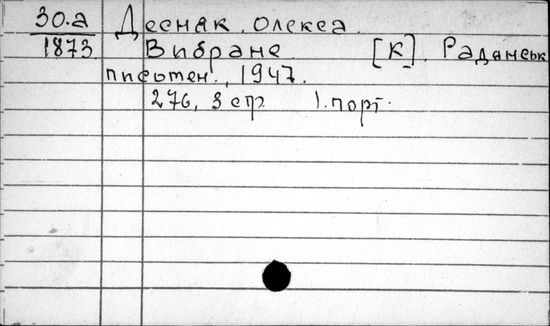 30.а Десняк. Олекса.
1873. Вибране. [К]. Радянськ
письмен., 1947.
276, 3 стр. 1. порт.